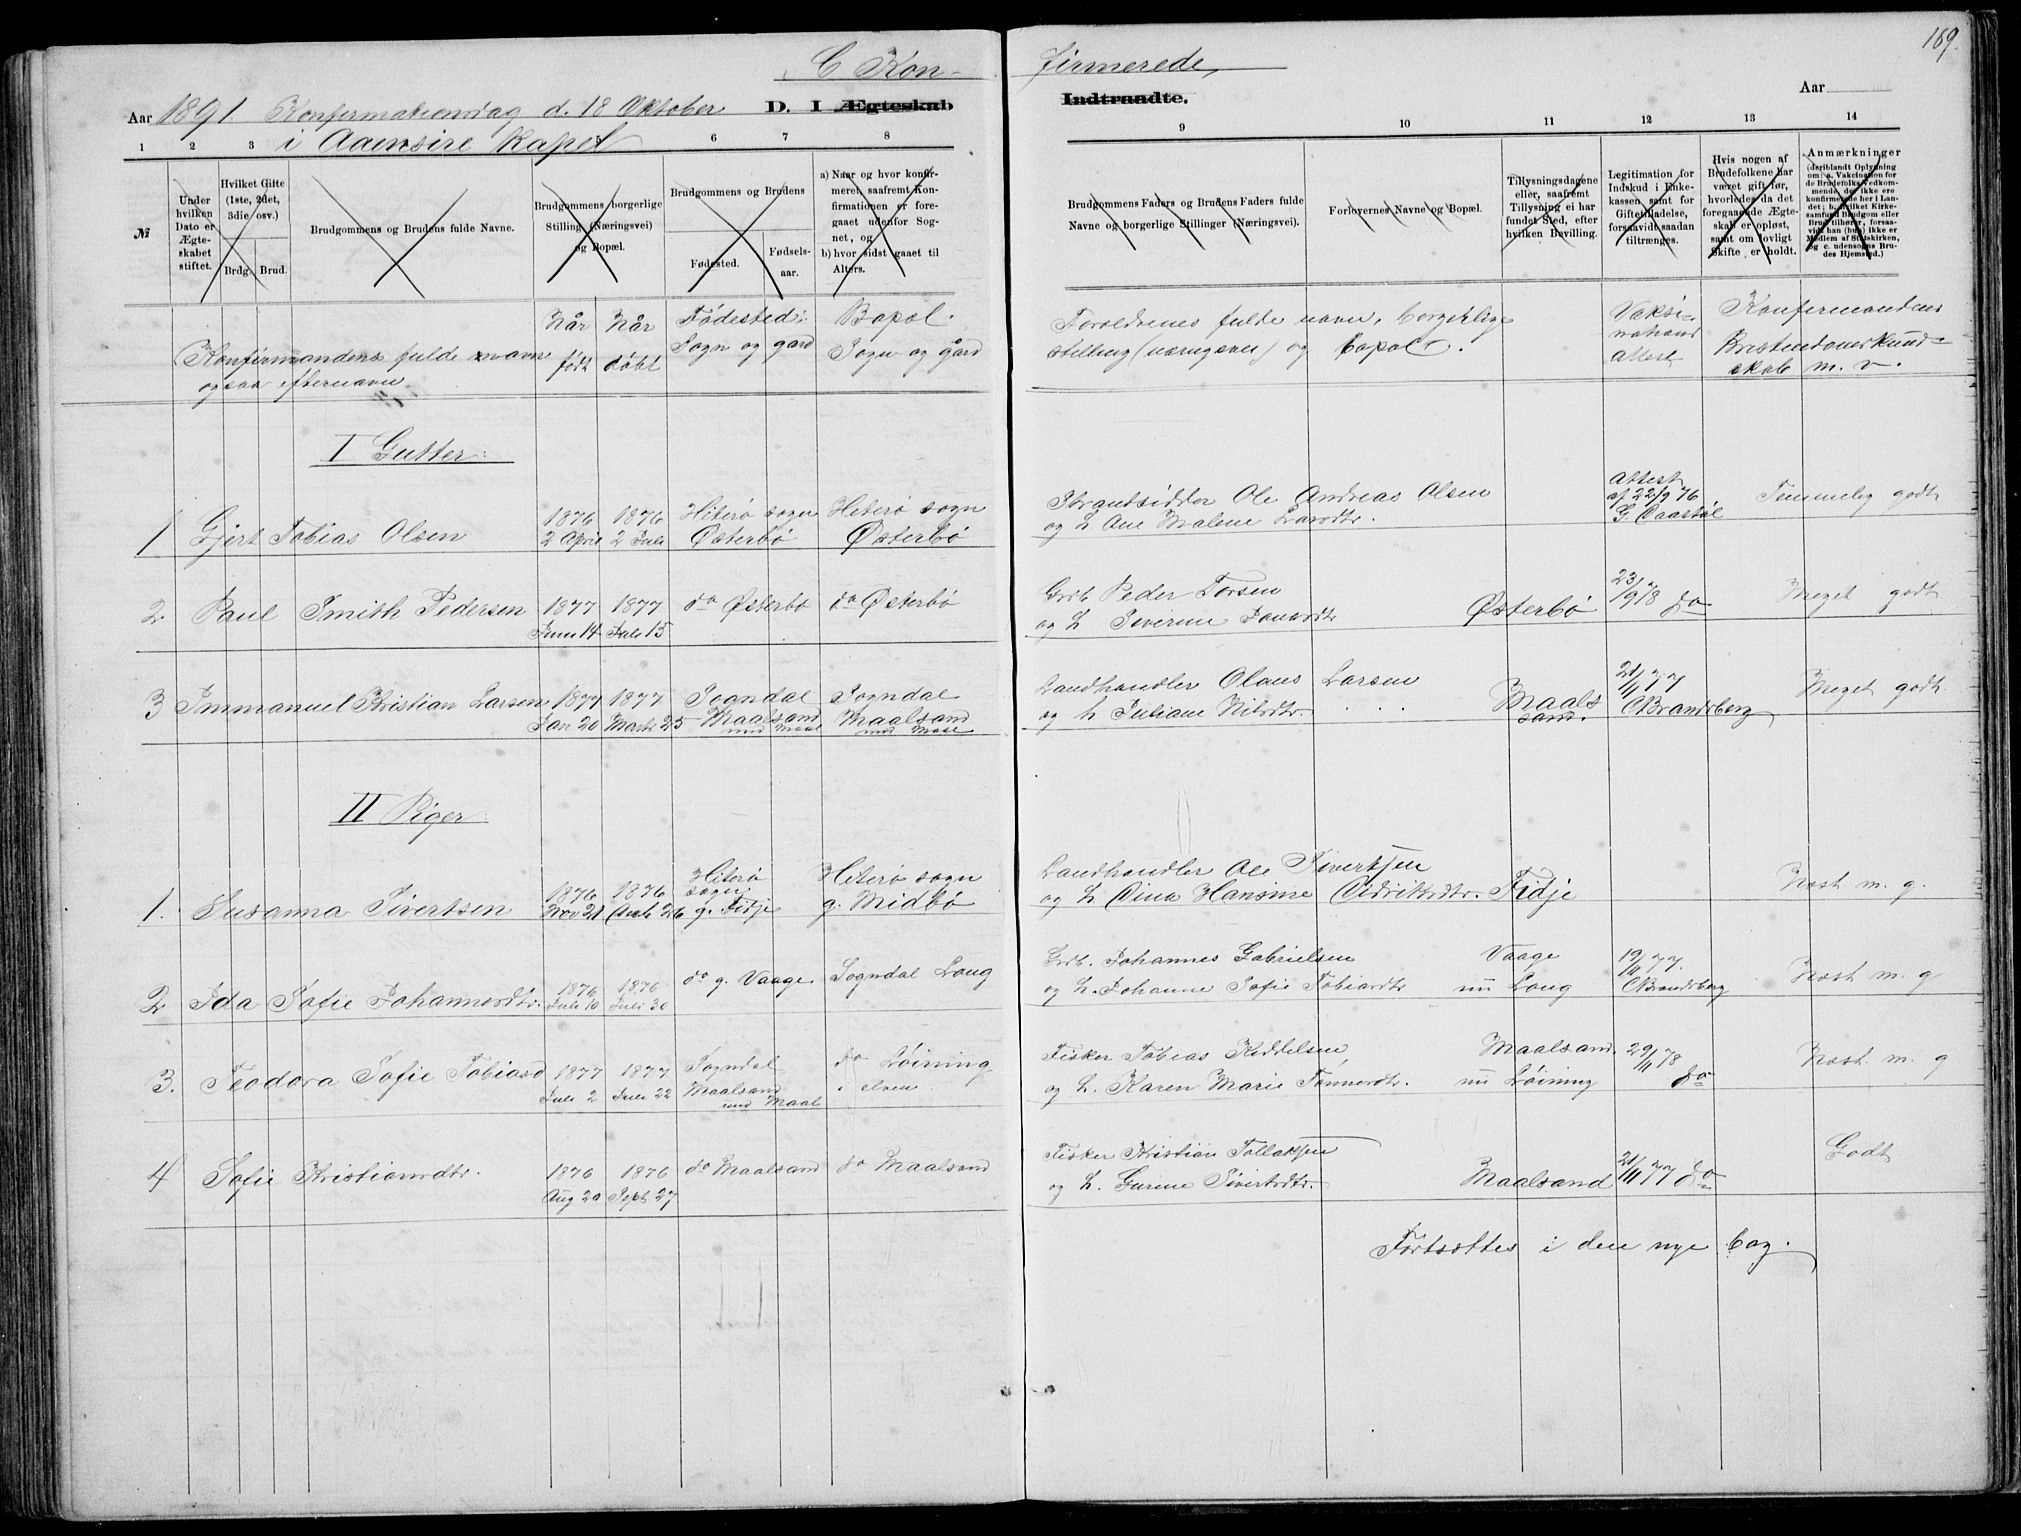 169.
C Kon-
firmerede,
Aar 1891. Konfirmationsdag d. 18 Oktober D. I Ægteskab
Indtraadte. Aar
i Aaensire Kapel
1 2 3 5 6 7 8 9 10 11 12 13 14
№
Under hvilken Dato er Ægteskabet stiftet.
Hvilket Gifte (1ste, 2det, 3die osv.)
Brdg. Brud.
Brudgommens og Brudens fulde Navne.
Brudgommens borgerlige Stilling (Næringsvei) og Bopæl.
Brudgommens og Brudens
Fødested. Fødselsaar.
a) Naar og hvor konfirmeret, saafremt Konfirmationen er foregaaet udenfor Sognet, og
b) hvor sidst gaaet til Alters.
Brudgommens Faders og Brudens Faders fulde Navne og borgerlige Stillinger (Næringsvei).
Forlovernes Navne og Bopæl.
Tillysningsdagene eller, saafremt Tillysning ei har fundet Sted, efter hvilken Bevilling.
Legitimation for Indskud i Enkekassen, samt for Giftetilladelse, forsaavidt saadan tiltrænges.
Hvis nogen af Brudefolkene har været gift før, hvorledes da det foregaaende Ægteskab er opløst, samt om lovligt Skifte er holdt.
Anmærkninger (deriblandt Oplysning om: a. Vakcination for de Brudefolks Vedkommende, der ikke ere konfirmerede her i Landet; b. hvilket Kirkesamfund Brudgom eller Brud tilhører, forsaavidt han (hun) ikke er Medlem af Statskirken, og c. udensogns Brudes Hjemsted.)
Konfirmandens fulde navn
ogsaa efternavn
Når født
Når døbt
Fødested: Sogn og gard
Bopol. Sogn og gård
Foroldrenes fulde navn, borgerlige
stilling (næringsvei) og bopol.
Vaksinations Attest
Konfirmandens
Kristendomskundskab m. v.
I Gutter:
1 Gjert Tobias Olsen 1876 2 April 1876 2 Juli Hiterø sogn Østerbø Hiterø sogn Østerbø
Strandsidder Ole Andreas Olsen
og h. Ane Malene Larsdtr.
Attest af 22/9 76 Temmelig godt
2 Paul Smith Pedersen 1877 Juni 14 1877 Juli 15 do Østerbø do Østerbø
Grdb. Peder Torsen
og h. Severine Østerbø 23/9 78 do Meget godt
3 Immanuel Kristian Larsen 1877 Jan 20 1877 Marts 25 Sogndal Maalsand Sogndal Maalsand
Landhandler Olaus Larsen
og h. Juliane Nilsdtr. Maalsand. 21/11 77 C Brandsberg Meget godt
II Piger
1. Susanna Sivertsen 1876 Nov 21 1876 Hiterø sogn: g. Fidje Hiterø sogn g. Midbø
Landhandler Ole Sivertsen
og h. Hansine Fidje Nost m. g.
2 Ida Sofie Johannesdtr. 1876 Juli 10 1876 Juli 30 do g. Vaage. Sogndal Loug
Grdb. Johannes Gabrielsen Vaage
og h. Johanne Sofie Tobiasdtr nu Loug 19/11 77. C Brandsberg Nost m. g
3. Teodora Sofie Tobiasd 1877 Juli 2 1877 Juli 22 Sogndal Maalsand do Løining i elven
Fisker Tobias Keddelsen, Maalsand
og h. Karen Marie Tonnesdtr. nu Løining 29/11 78 do Nost m. g
4 Sofie Kristiansdtr. 1876 Aug 20 1876 Sept 27 do Maalsand do Maalsand
Fisker Kristian Tollaksen
og h. Gurine Sivertsdtr. Maalsand 21/11 77 do Godt
Fortsættes i den nye bog.